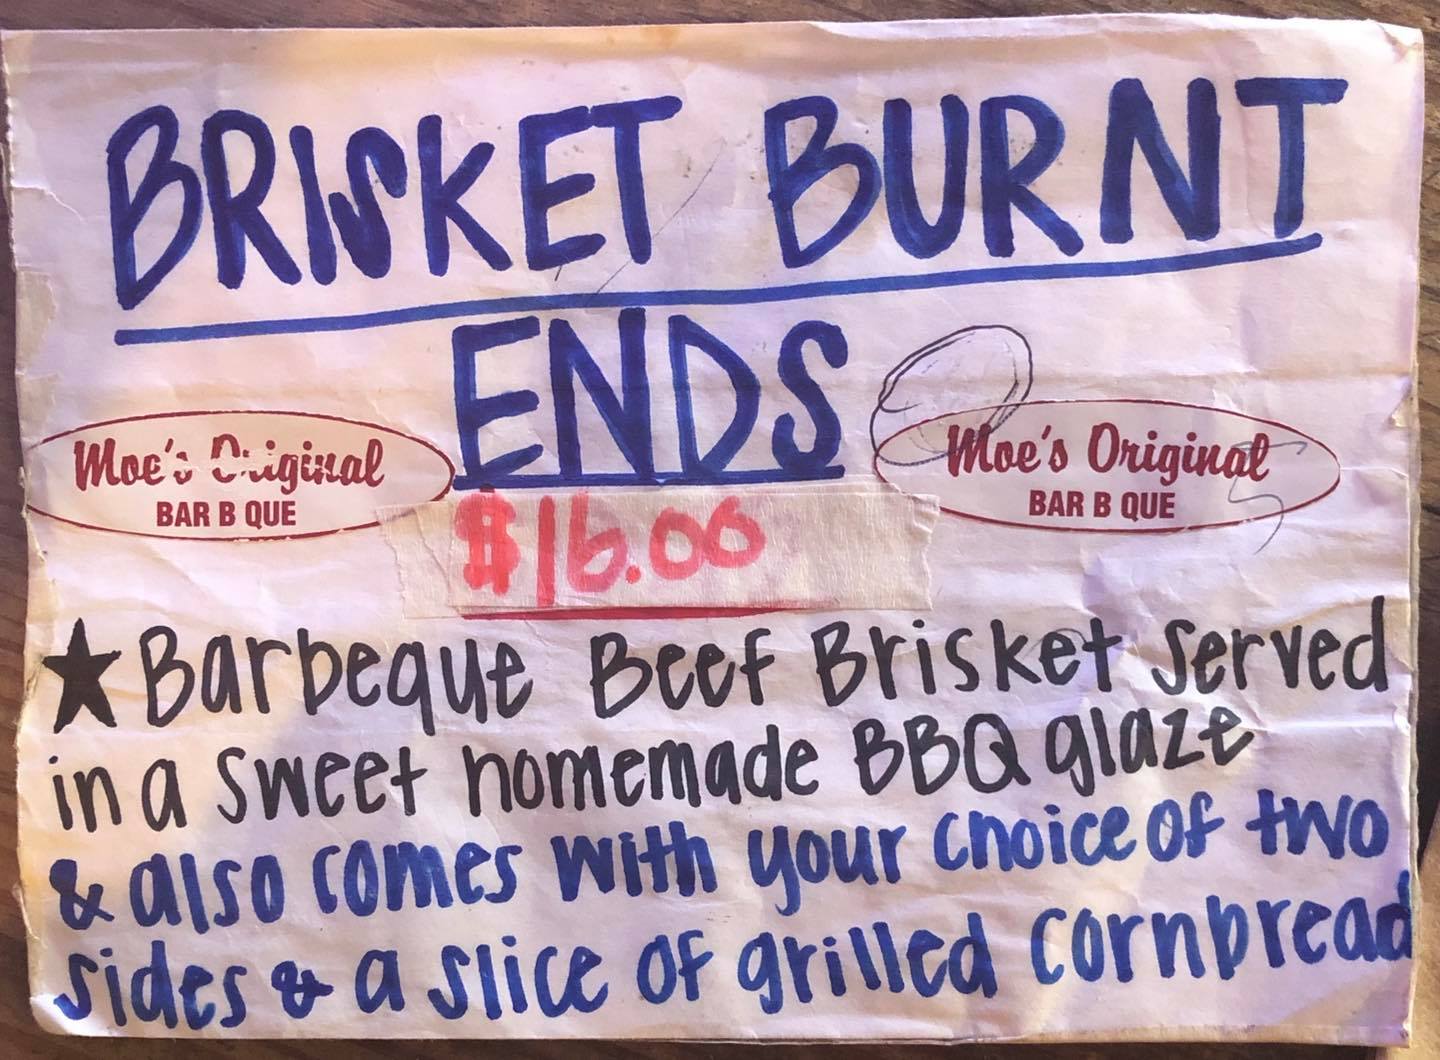 BRISKET BURNT
ENDS
Moe's Original
BAR B QUE
Moe's Original
BAR B QUE
$16.00
★ Barbeque Beef Brisket served
in a sweet homemade BBQ glaze
& also comes with your choice of two
sides & a slice of grilled cornbread